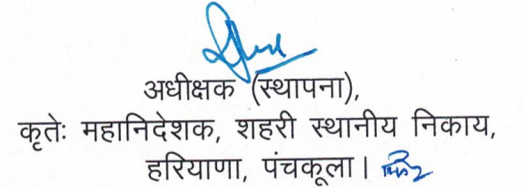 अधीक्षक (स्थापना),
कृतेः महानिदेशक, शहरी स्थानीय निकाय,
हरियाणा, पंचकूला।